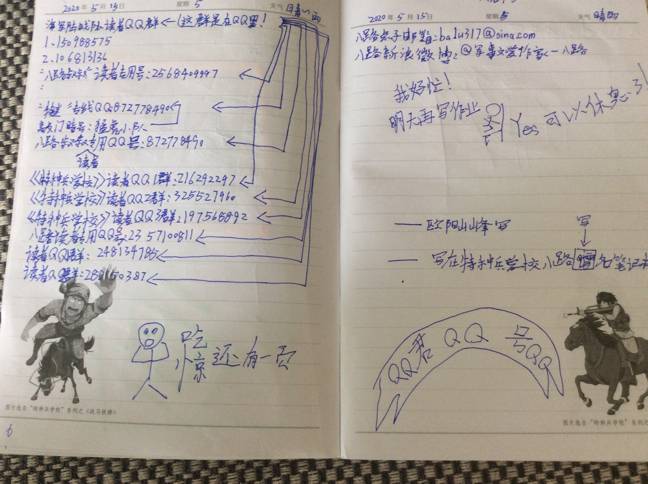 2020年5月15日 天气 晴
海军陆战队读者QQ群←(这群是在QQ里!
1.150988575
2.106813134
读者专用号:2568409997
热线QQ872778490
专用QQ号:872778490
读者
《特种兵学校》读者QQ1群:216292297
《特种兵学校》读者QQ2群:325527960
《特种兵学校》读者QQ3群:197568892
八路读者专用QQ号:2357100811
读者QQ群:248134785
读者QQ群:282150387
吃惊 还有一页
图片选自“特种兵学校”系列之《战马铁蹄》
6
2020年5月15日 天气 晴
八路电子邮箱:balu317@sina.com
八路新浪微博:@军事文学作家—八路
我好忙!
明天再写作业
Yes 可以休息了!
——欧阳山峰写
写
——写在特种兵学校八路签名笔记本
QQ君 QQ号QQ
图片选自“特种兵学校”系列之